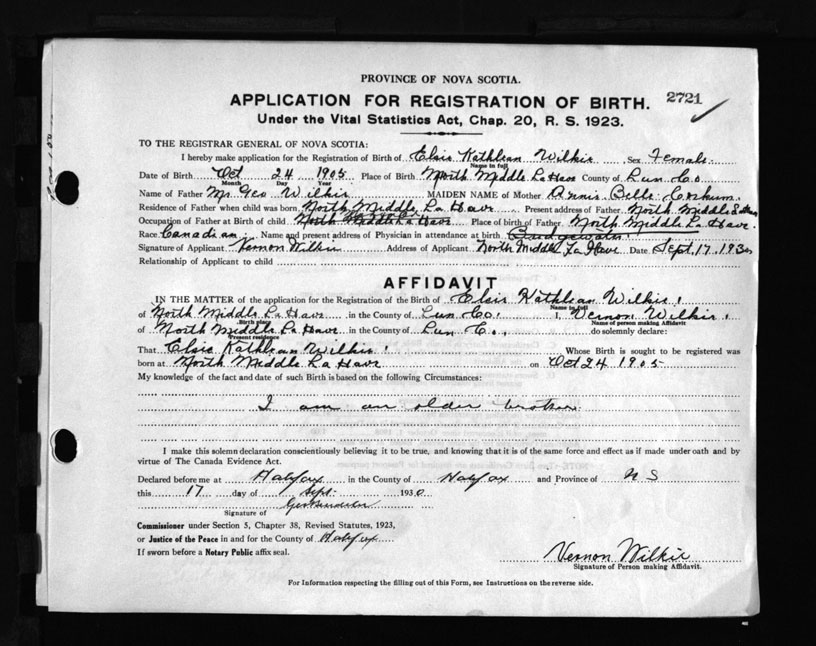 PROVINCE OF NOVA SCOTIA.
APPLICATION FOR REGISTRATION OF BIRTH. 2721
Under the Vital Statistics Act, Chap. 20, R. S. 1923.
TO THE REGISTRAR GENERAL OF NOVA SCOTIA:
I hereby make application for the Registration of Birth of Elsie Kathlean Wilkie Sex Female
Name in full
Date of Birth Oct 24 1905 Place of Birth North Middle La Have County of Lun Co
Month Day Year
Name of Father Mr Geo Wilkie MAIDEN NAME of Mother Annie Belle Corkum
Residence of Father when child was born North Middle La Have Present address of Father North Middle La Have
Occupation of Father at Birth of child North Middle La Have Place of birth of Father North Middle La Have
Race Canadian Name and present address of Physician in attendance at birth Bridgewater
Signature of Applicant Vernon Wilkie Address of Applicant North Middle La Have Date Sept. 17. 1930
Relationship of Applicant to child
AFFIDAVIT
IN THE MATTER of the application for the Registration of the Birth of Elsie Kathlean Wilkie
Name in full
of North Middle La Have in the County of Lun Co. I, Vernon Wilkie
Birth place Name of person making Affidavit
of North Middle La Have in the County of Lun Co., do solemnly declare:
Present residence
That Elsie Kathlean Wilkie Whose Birth is sought to be registered was
born at North Middle La Have on Oct 24 1905
My knowledge of the fact and date of such Birth is based on the following Circumstances:
I am an older brother
I make this solemn declaration conscientiously believing it to be true, and knowing that it is of the same force and effect as if made under oath and by
virtue of The Canada Evidence Act.
Declared before me at Halifax in the County of Halifax and Province of N S
this 17 day of Sept. 1930
Signature of
Commissioner under Section 5, Chapter 38, Revised Statutes, 1923,
or Justice of the Peace in and for the County of Halifax
If sworn before a Notary Public affix seal.
Vernon Wilkie
Signature of Person making Affidavit.
For Information respecting the filling out of this Form, see Instructions on the reverse side.